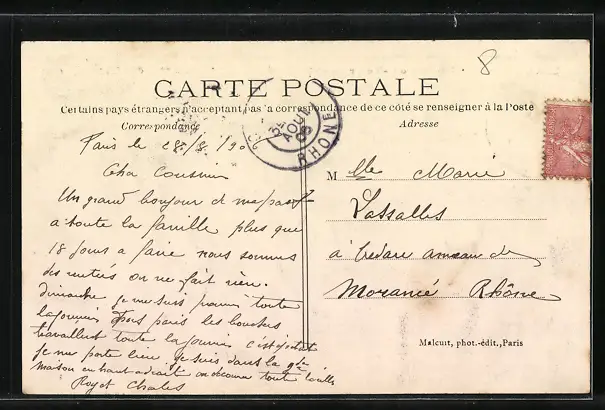 8
CARTE POSTALE
Certains pays étrangers n'acceptant pas la correspondance de ce côté se renseigner à la Poste
Correspondance
Adresse
AOUT
RHONE
Paris le 28/8/90
Cha Cousin
Un grand bonjour de ma part
a toute la famille plus que
18 jours a faire nous sommes
des on ne fait rien.
dimanche je me suis toute
la journée paris les bouches
travaillent toute la journée c'est
je me porte bien je suis dans la
maison en haut on découvre toute la ville
Royet Chales
M lle Marie
Lassalles
à hameau de
Morancé Rhône
Malcuit, phot.-édit., Paris